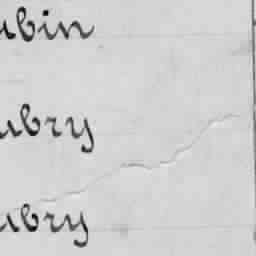 ubin
ubry
ubry